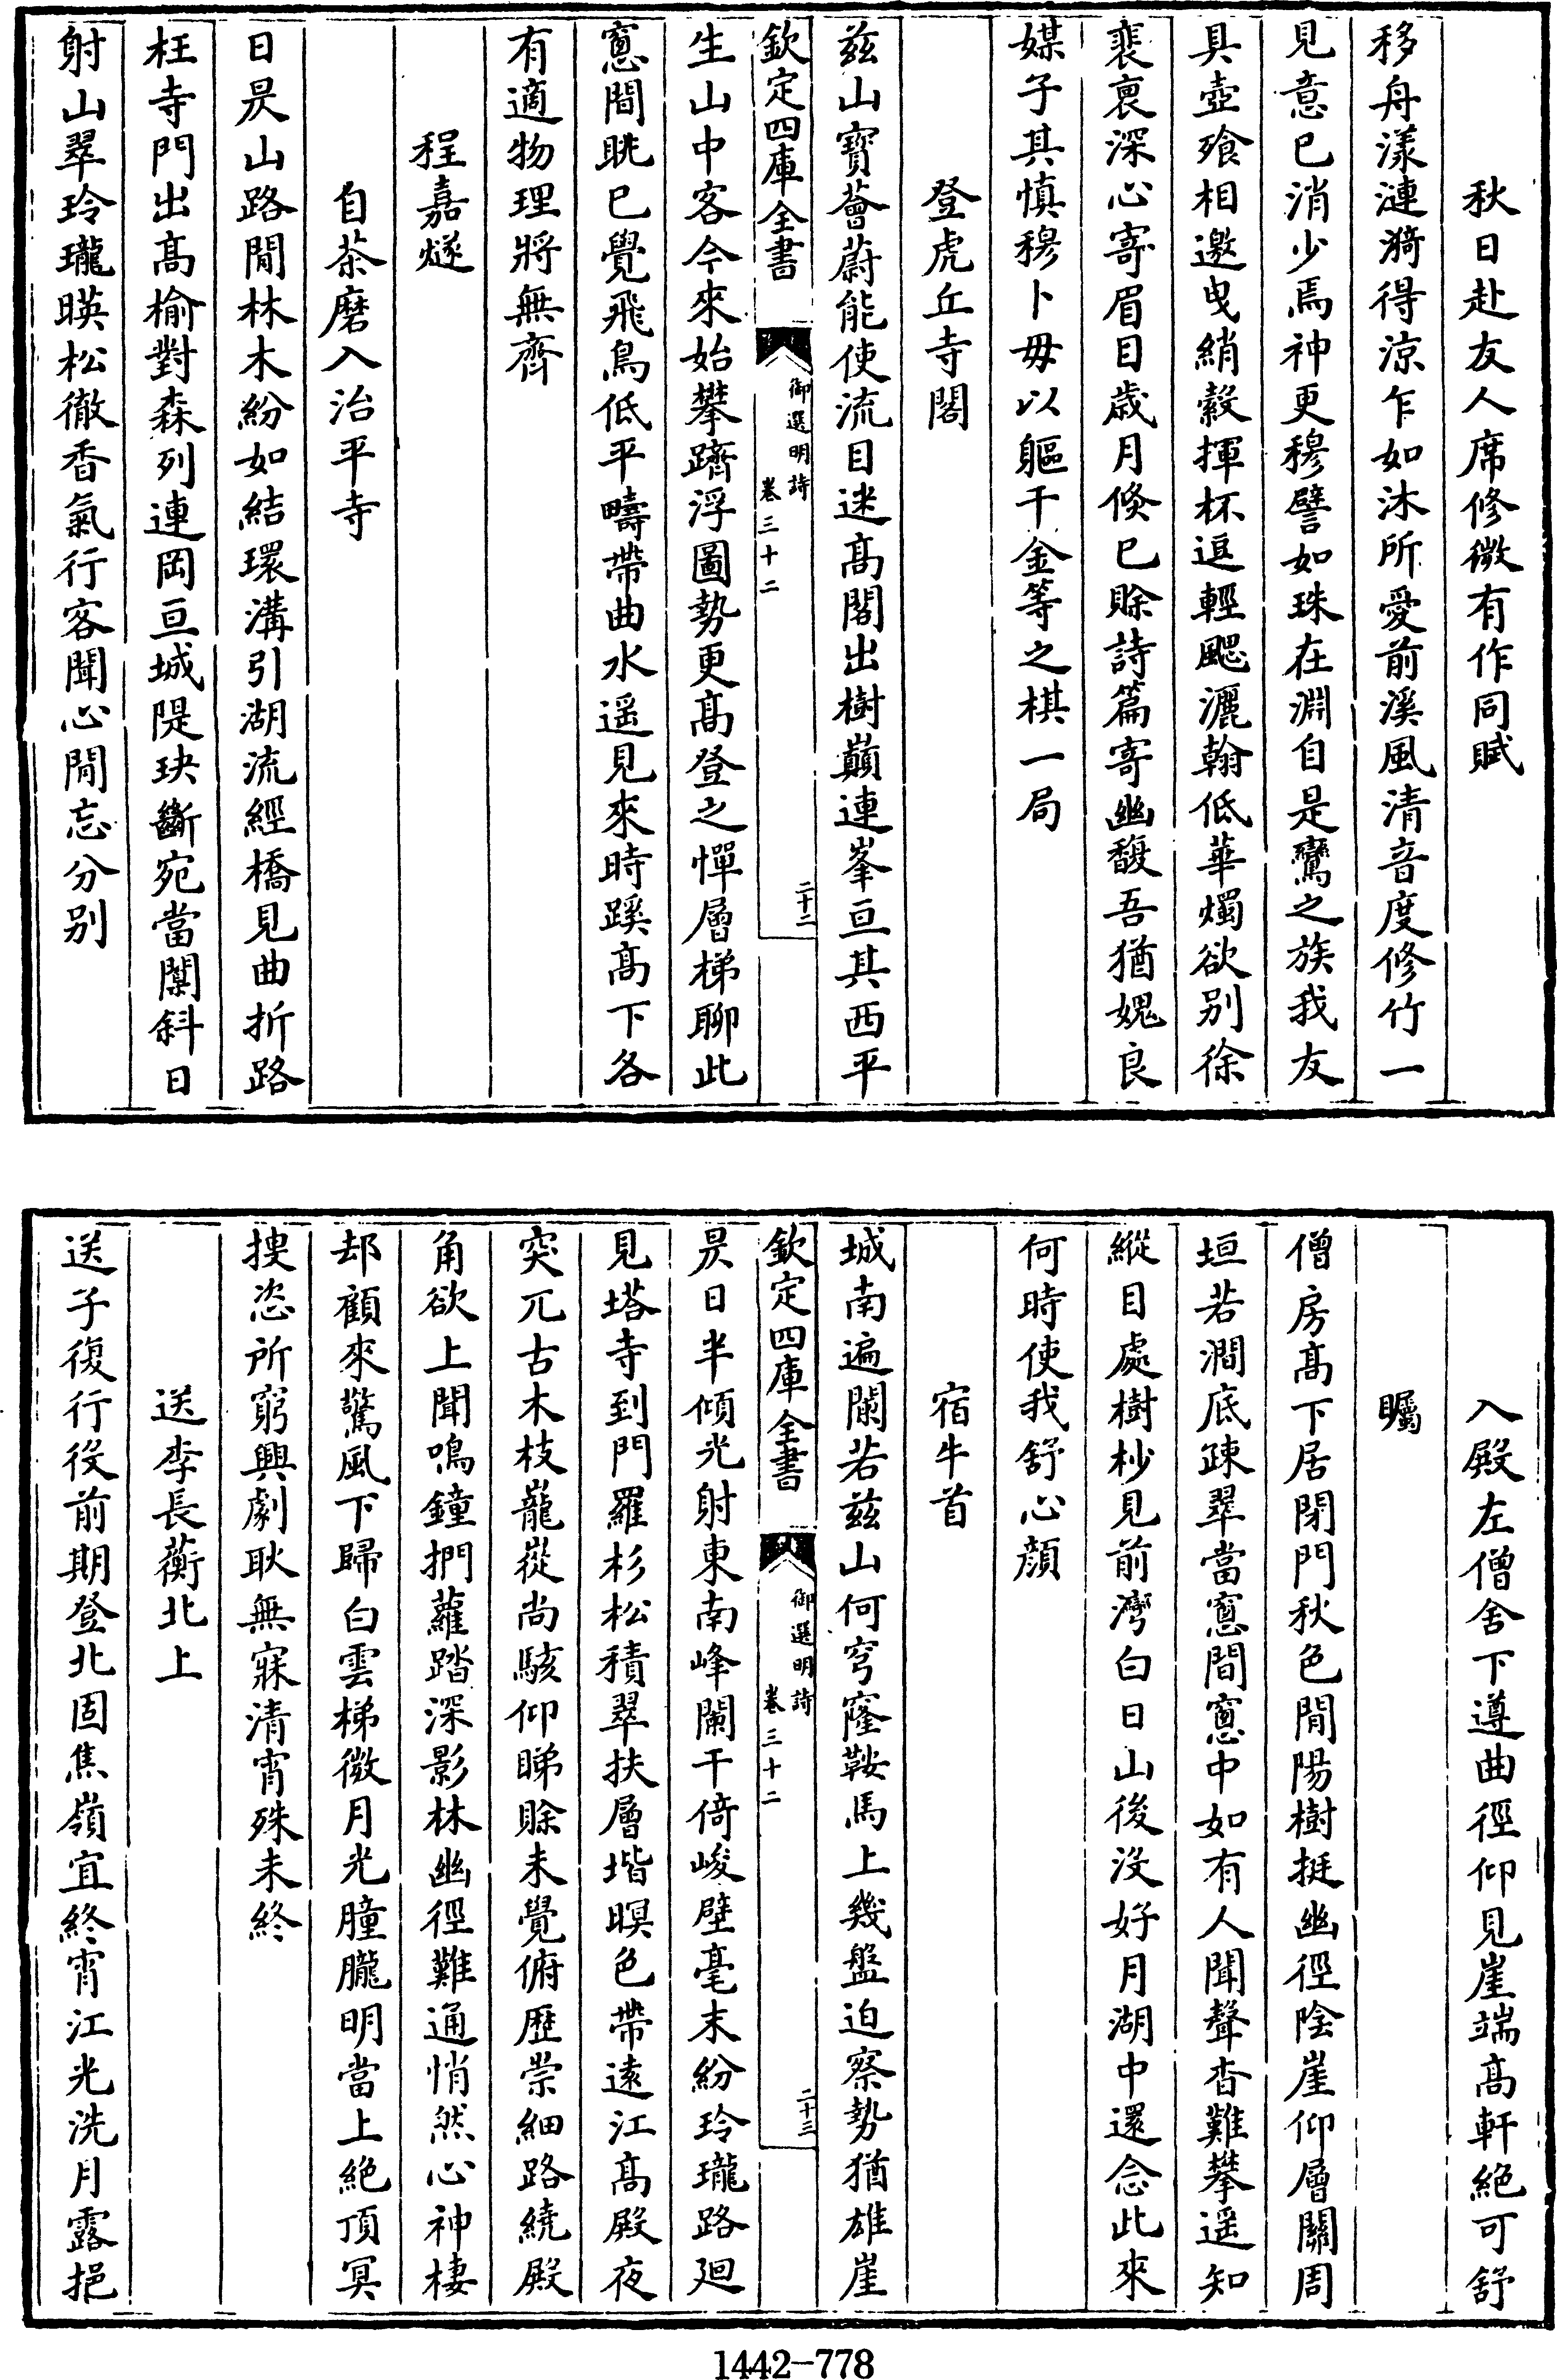 秋日赴友人席修微有作同賦
移舟漾漣漪得涼乍如沐所愛前溪風清音度修竹一
見意已消少焉神更穆譬如珠在淵自是鸞之族我友
具壺飱相邀曳綃縠揮杯逗輕颸灑翰低華燭欲别徐
裴裒深心寄眉目歳月倐已賒詩篇寄幽馥吾猶媿良
媒子其慎穆卜毋以軀千金等之棋一局
登虎丘寺閣
兹山寶薈蔚能使流目迷髙閣出樹巔連峯亘其西平
欽定四庫全書
御選明詩
卷三十二
二十二
生山中客今來始攀躋浮圖勢更髙登之憚層梯聊此
窻間眺已覺飛鳥低平疇帶曲水遥見來時蹊髙下各
有適物理將無齊
程嘉燧
自茶磨入治平寺
日昃山路閒林木紛如結環溝引湖流經橋見曲折路
枉寺門出髙榆對森列連岡亘城隄玦斷宛當闑斜日
射山翠玲瓏暎松徹香氣行客聞心閒忘分别
入殿左僧舍下遵曲徑仰見崖端髙軒絶可舒
矚
僧房髙下居閉門秋色閒陽樹挺幽徑陰崖仰層關周
垣若澗底疎翠當窻間窻中如有人聞聲杳難攀遥知
縱目處樹杪見前灣白日山後沒好月湖中還念此來
何時使我舒心顔
宿牛首
城南遍蘭若兹山何穹窿鞍馬上幾盤迫察勢猶雄崖
欽定四庫全書
御選明詩
卷三十二
二十三
昃日半傾光射東南峰闌干倚峻壁毫末紛玲瓏路廻
見塔寺到門羅杉松積翠扶層堦暝色帶遠江髙殿夜
突兀古木枝巃嵸尚駭仰睇賒未覺俯歴崇細路繞殿
角欲上聞鳴鐘捫蘿踏深影林幽徑難通悄然心神棲
却顧來驚風下歸白雲梯微月光朣朧明當上絶頂冥
捜恣所窮興劇耿無寐清宵殊未終
送李長蘅北上
送子復行役前期登北固焦嶺宜終宵江光洗月露挹
1442-778